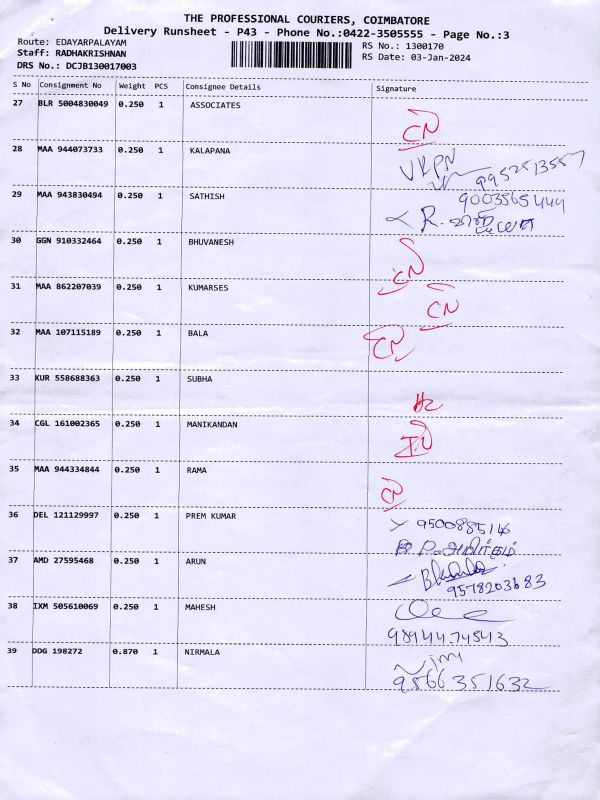 THE PROFESSIONAL COURIERS, COIMBATORE
Delivery Runsheet - P43 - Phone No.:0422-3505555 - Page No.:3
Route: EDAYARPALAYAM
RS No.: 1300170
Staff: RADHAKRISHNAN
RS Date: 03-Jan-2024
DRS No.: DCJB130017003
S No Consignment No Weight PCS Consignee Details Signature
27 BLR 5004830049 0.250 1 ASSOCIATES
CN
28 MAA 944073733 0.250 1 KALAPANA
VKPN
9952513557
29 MAA 943830494 0.250 1 SATHISH
9003565444
R.
30 GGN 910332464 0.250 1 BHUVANESH
CN
31 MAA 862207039 0.250 1 KUMARSES
CN
32 MAA 107115189 0.250 1 BALA
CN
33 KUR 558688363 0.250 1 SUBHA
34 CGL 161002365 0.250 1 MANIKANDAN
35 MAA 944334844 0.250 1 RAMA
CN
36 DEL 121129997 0.250 1 PREM KUMAR
9500885146
37 AMD 27595468 0.250 1 ARUN
9578203683
38 IXM 505610069 0.250 1 MAHESH
9894474543
39 DDG 198272 0.870 1 NIRMALA
9566351632